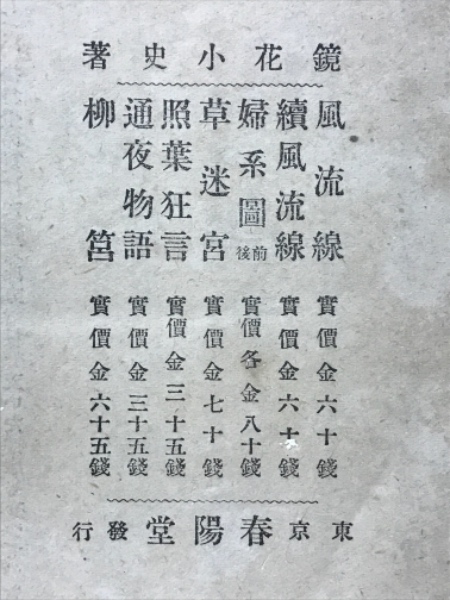 鏡花小史著
風流線 實價金六十錢
續風流線 實價金六十錢
婦系圖 前後 實價各金八十錢
草迷宮 實價金七十錢
照葉狂言 實價金三十五錢
通夜物語 實價金三十五錢
柳筥 實價金六十五錢
東京春陽堂發行